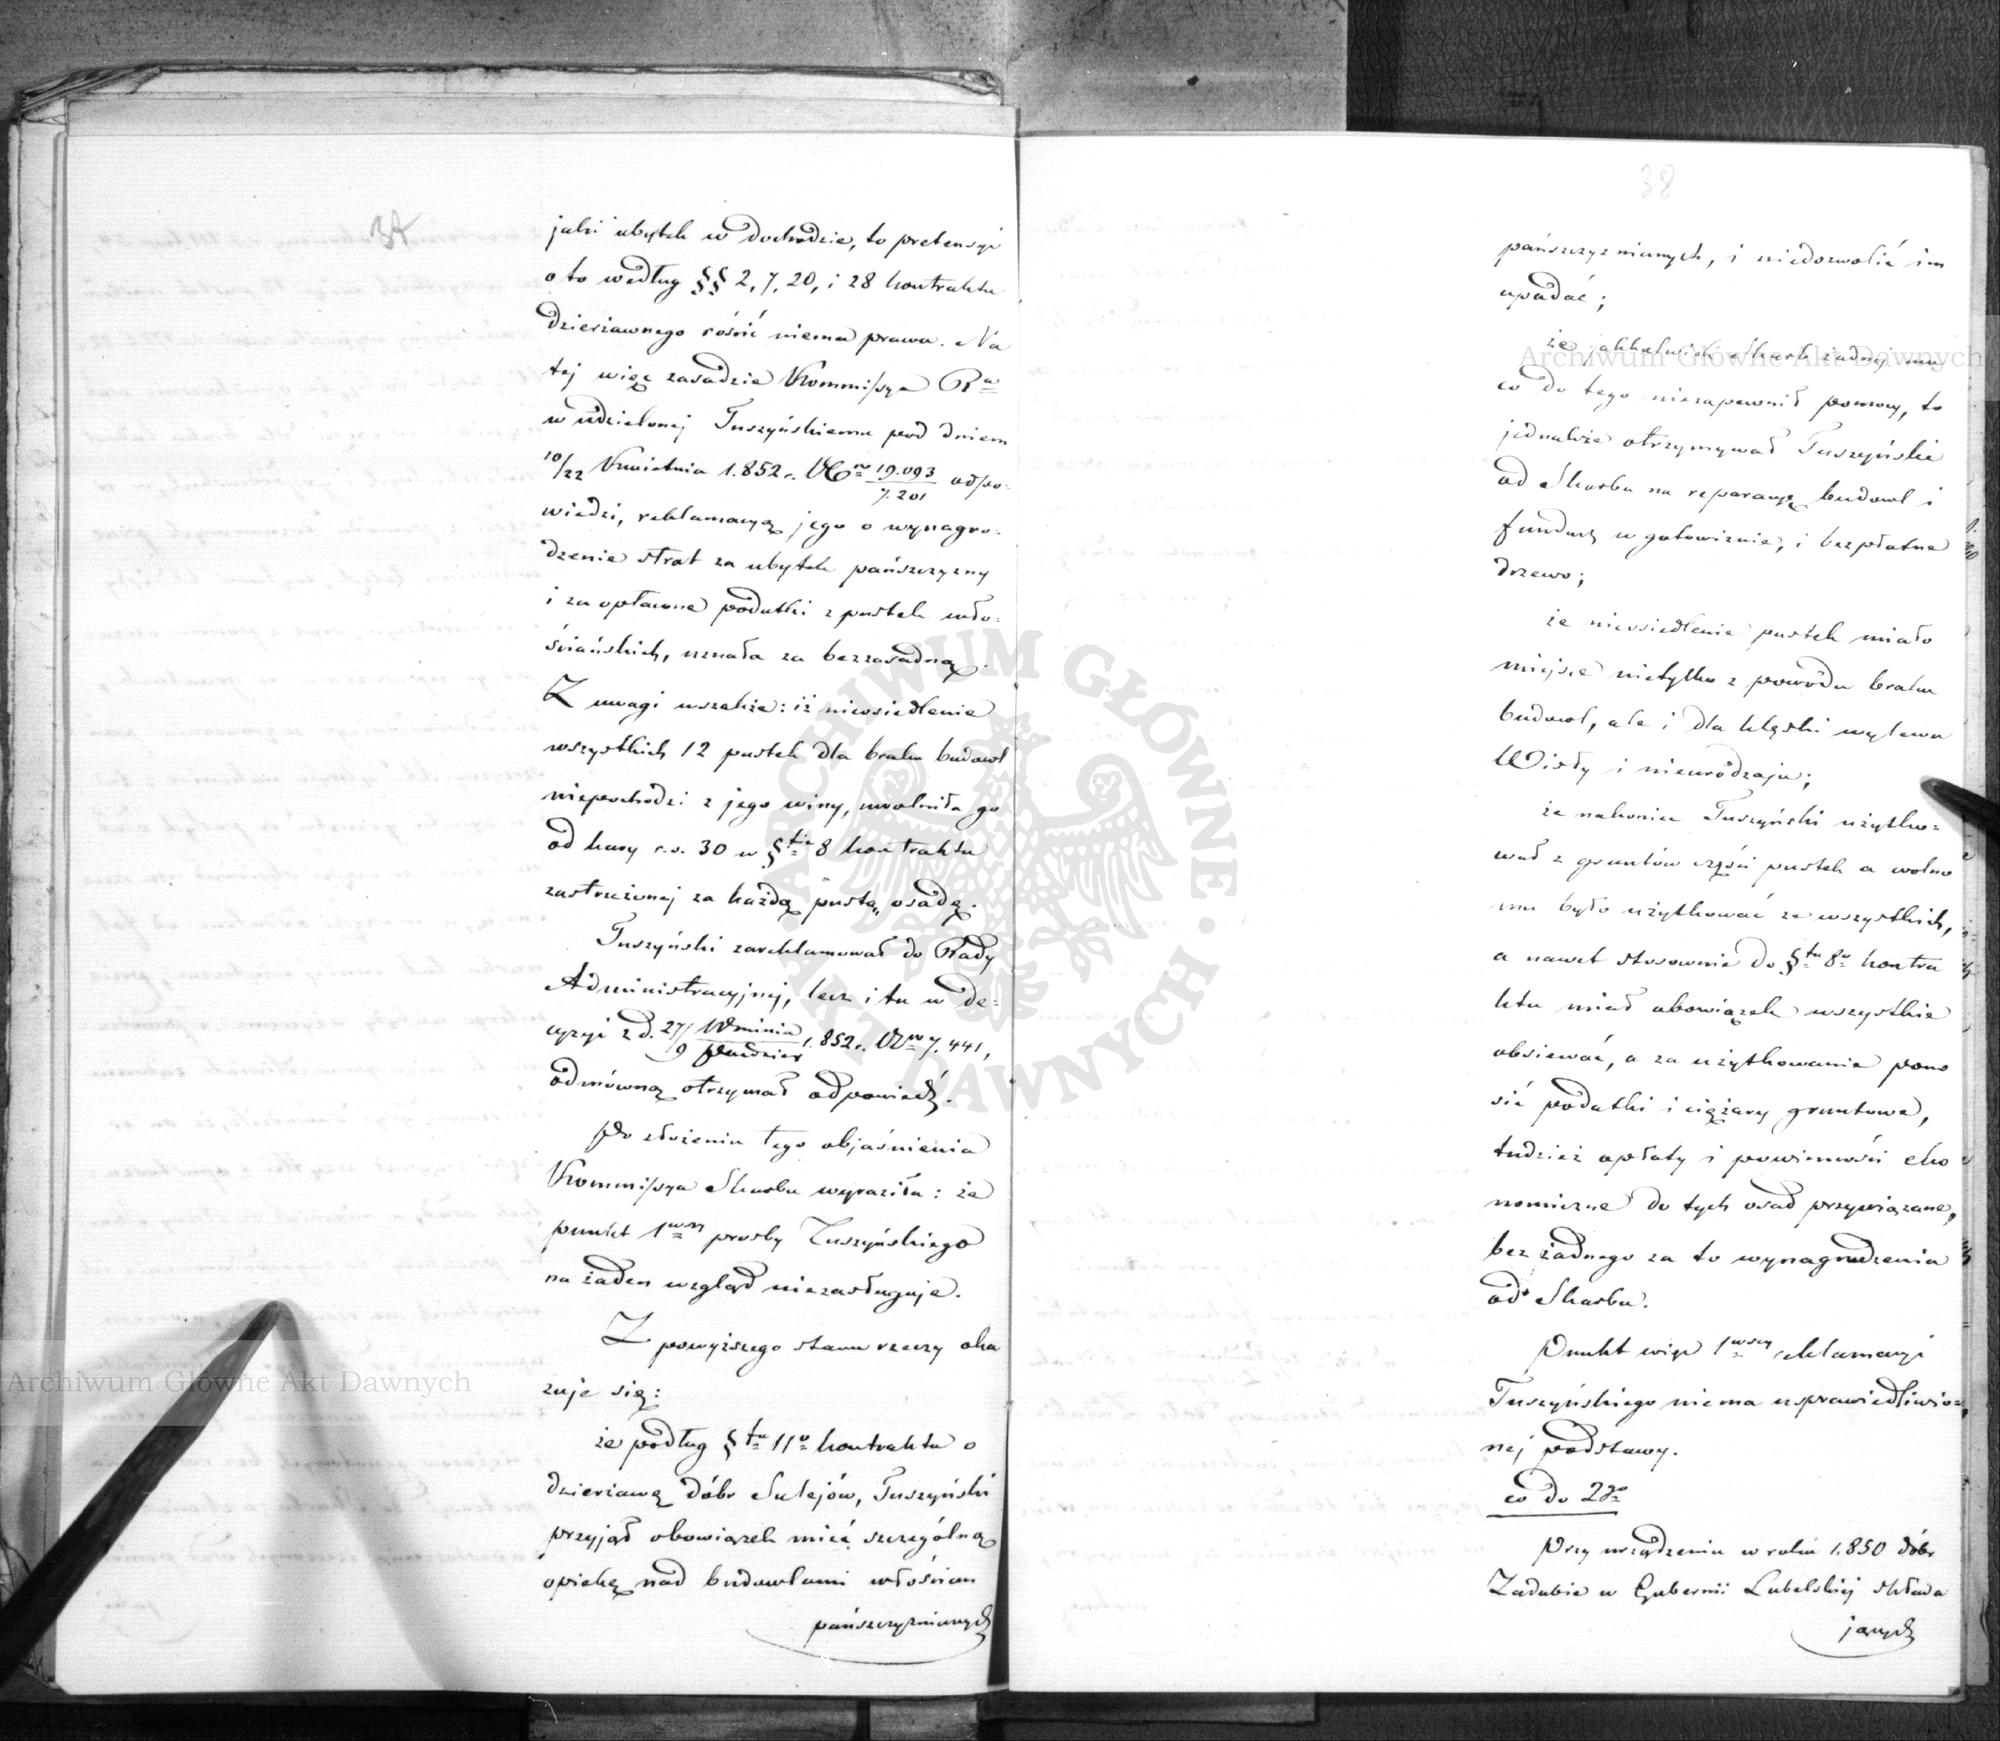 jaki ubytek w dochodzie, to pretensyi
o to według §§ 2, 7, 20, i 28 kontraktu
dzierżawnego rościć niema prawa. Na
tej więc zasadzie Kommissya Rw
w udzielonej Tuszyńskiemu pod dniem
10/22 Kwietnia 1.852 r. Nro 19.093/7.201 odpo-
wiedzi, reklamacyą jego o wynagro-
dzenie strat za ubytek pańszczyzny
i za opłacone podatki z pustek wło-
ściańskich, uznała za bezzasadną.
Z uwagi wszakże: iż nieosiedlenie
wszystkich 12 pustek dla braku budowl
niepochodzi z jego winy, uwolniła go
od kary r.s. 30 w §fie 8 kontraktu
zastrzeżonej za każdą pustą osadę.
Tuszyński zareklamował do Rady
Administracyjnej, lecz i tu w de-
cyzyi z d. 27/9 Września/Paździer 1.852 r. Nro 7.441,
odmówną otrzymał odpowiedź.
Po złożeniu tego objaśnienia
Kommissya Skarbu wyraziła: że
punkt 1wszy prośby Tuszyńskiego
na żaden wzgląd niezasługuje.
Z powyższego stanu rzeczy oka
zuje się:
że podług §fu 11o kontraktu o
dzierżawę dóbr Sulejów, Tuszyński
przyjął obowiązek mieć szczególną
opiekę nad budowlami włościan
pańszczyznianych
38
pańszczyznianych, i niedozwolić im
upadać;
że jakkolwiek Skarb żadnej mu
co do tego niezapewnił pomocy, to
jednakże otrzymywał Tuszyński
od Skarbu na reparacyę budowl i
fundusz w gotowiznie, i bezpłatne
drzewo;
że nieosiedlenie pustek miało
miejsce nietylko z powodu braku
budowl, ale i dla klęski wylewu
Wisły i nieurodzaju;
że nakoniec Tuszyński użytko-
wał z gruntów części pustek a wolno
mu było użytkować ze wszystkich,
a nawet stosownie do §fu 8o kontra
ktu miał obowiązek wszystkie
obsiewać, a za użytkowanie pono
sić podatki i ciężary gruntowe,
tudzież opłaty i powinności eko
nomiczne do tych osad przywiązane,
bez żadnego za to wynagrodzenia
od Skarbu.
Punkt więc 1wszy reklamacyi
Tuszyńskiego niema usprawiedliwio-
nej podstawy.
co do 2go
Przy urządzeniu w roku 1.850 dóbr
Zadubie w Gubernii Lubelskiej składa
jących
Archiwum Główne Akt Dawnych
Archiwum Główne Akt Dawnych
ARCHIWUM GŁÓWNE · AKT DAWNYCH ·